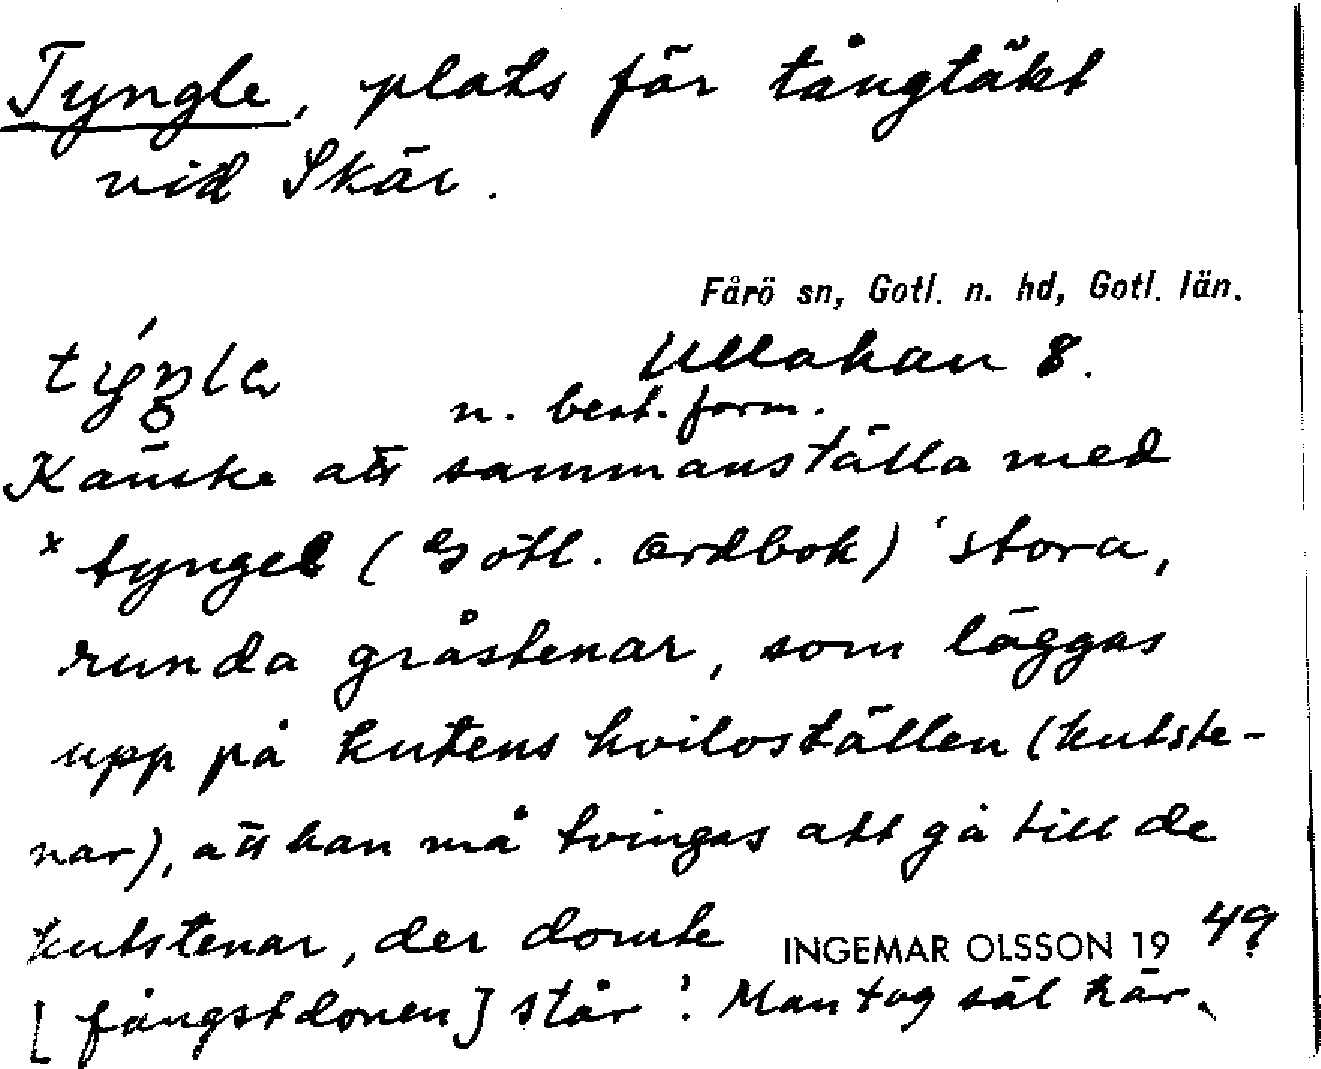 Tyngle, plats för tångtäkt
vid Skär.
Fårö sn, Gotl. n. hd, Gotl. län.
Ullahau 8.
n. best. form.
Kanske att sammanställa med
* tyngel (Gotl. Ordbok) 'stora,
runda gråstenar, som läggas
upp på kutens hviloställen (kutste-
nar), att han må tvingas att gå till de
kutstenar, der
INGEMAR OLSSON 19 49
[fångstdonen] står'. Man tog säl här.